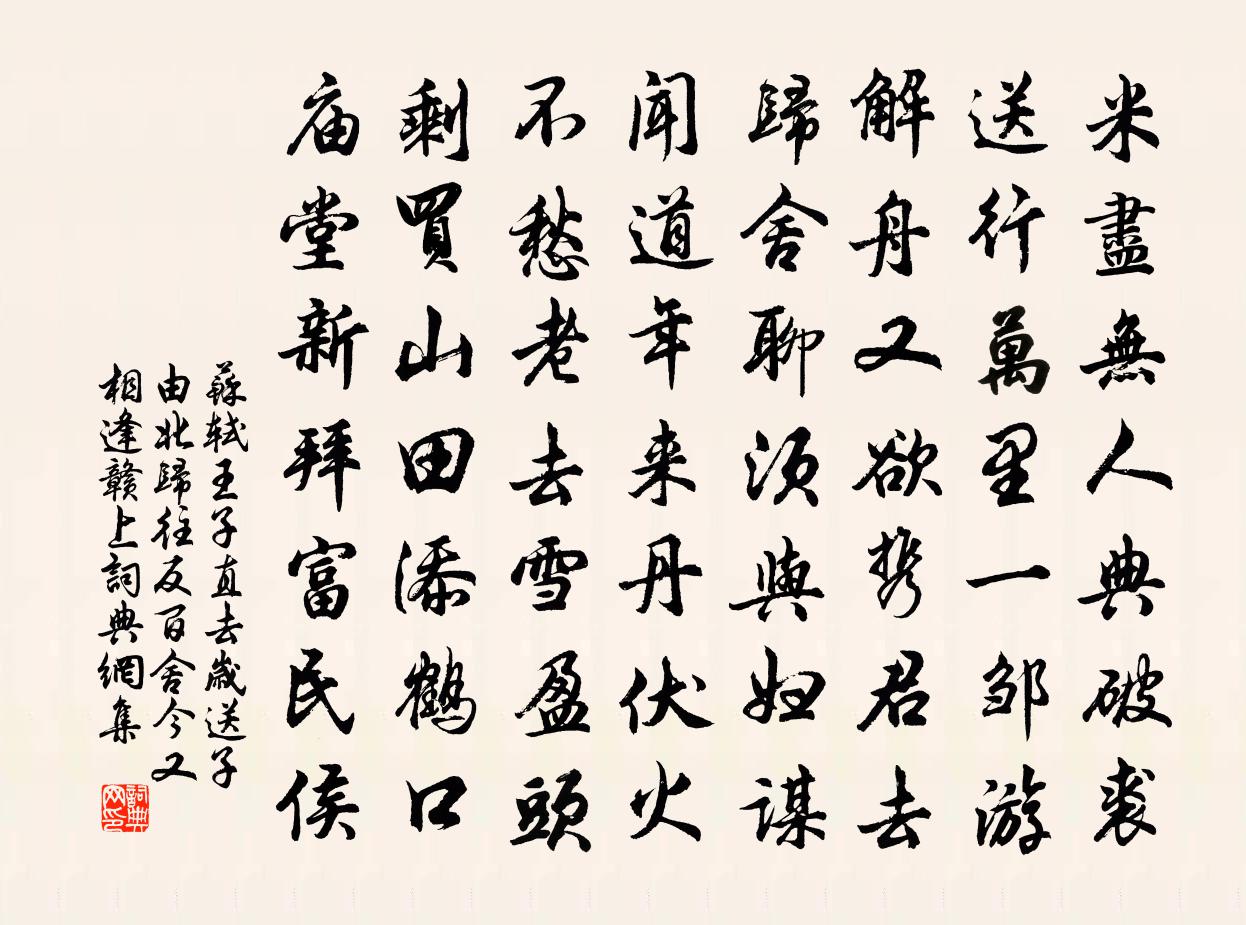 米盡無人典破裘
送行萬里一邹游
解舟又欲携君去
歸舍聊須與妇謀
闻道年来丹伏火
不愁老去雪盈頭
剩買山田添鶴口
庙堂新拜富民侯
蘇轼王子直去歲送子
由北歸往反百舍今又
相逢贛上詞典網集
詞典网印